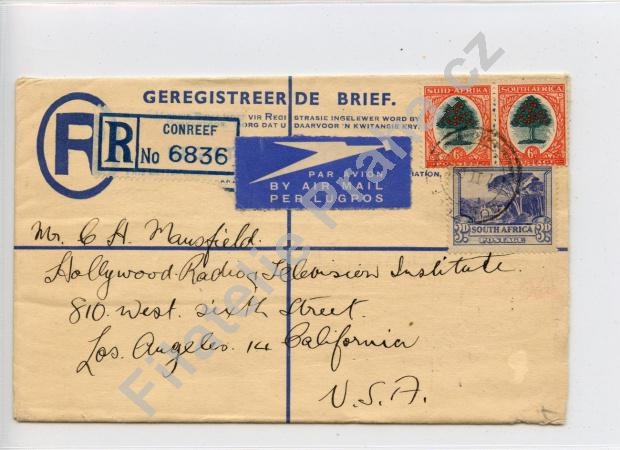 SUID-AFRIKA SOUTH AFRICA
6D 6D
POSTAGE
GEREGISTREERDE BRIEF.
VIR REGISTRASIE INGELEWER WORD BY
DAARVOOR 'N KWITANSIE KRY.
R CONREEF
No 6836
PAR AVION
BY AIR MAIL
PER LUGPOS
3D SOUTH AFRICA 3D
POSTAGE
Mr. C H. Mansfield.
Hollywood Radio, Television Institute.
810. West. Sixth Street.
Los. Angeles. 14 California
U.S.A.
Filatelie Praha.cz